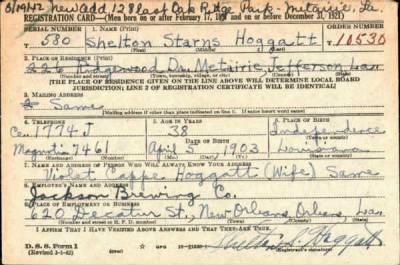 6/19/42 New add 128 East Oak Ridge Park - Metairie, La.
REGISTRATION CARD—(Men born on or after February 17, 1897 and on or before December 31, 1921)
SERIAL NUMBER
1. NAME (Print)
ORDER NUMBER
580
Shelton Starns Hoggatt
10530
2. PLACE OF RESIDENCE (Print)
226 Ridgewood Dr. Metairie, Jefferson, Lou
(Number and street) (Town, township, village, or city) (County) (State)
[THE PLACE OF RESIDENCE GIVEN ON THE LINE ABOVE WILL DETERMINE LOCAL BOARD
JURISDICTION; LINE 2 OF REGISTRATION CERTIFICATE WILL BE IDENTICAL]
3. MAILING ADDRESS
Same
[Mailing address if other than place indicated on line 2. If same insert word same]
4. TELEPHONE
5. AGE IN YEARS
6. PLACE OF BIRTH
Ced 1774 J
38
Independence
DATE OF BIRTH
(Town or county)
Magnolia 7461
April 5, 1903
Louisiana
(Exchange) (Number)
(Mo.) (Day) (Yr.)
(State or country)
7. NAME AND ADDRESS OF PERSON WHO WILL ALWAYS KNOW YOUR ADDRESS
Violet Cappe Hoggatt (Wife) Same
8. EMPLOYER'S NAME AND ADDRESS
Jackson Brewing Co.
9. PLACE OF EMPLOYMENT OR BUSINESS
620 Decatur St., New Orleans, Orleans, Lou.
(Number and street or R. F. D. number) (Town) (County) (State)
I AFFIRM THAT I HAVE VERIFIED ABOVE ANSWERS AND THAT THEY ARE TRUE.
D. S. S. Form 1
(Revised 1-1-42)
GPO
Shelton S. Hoggatt